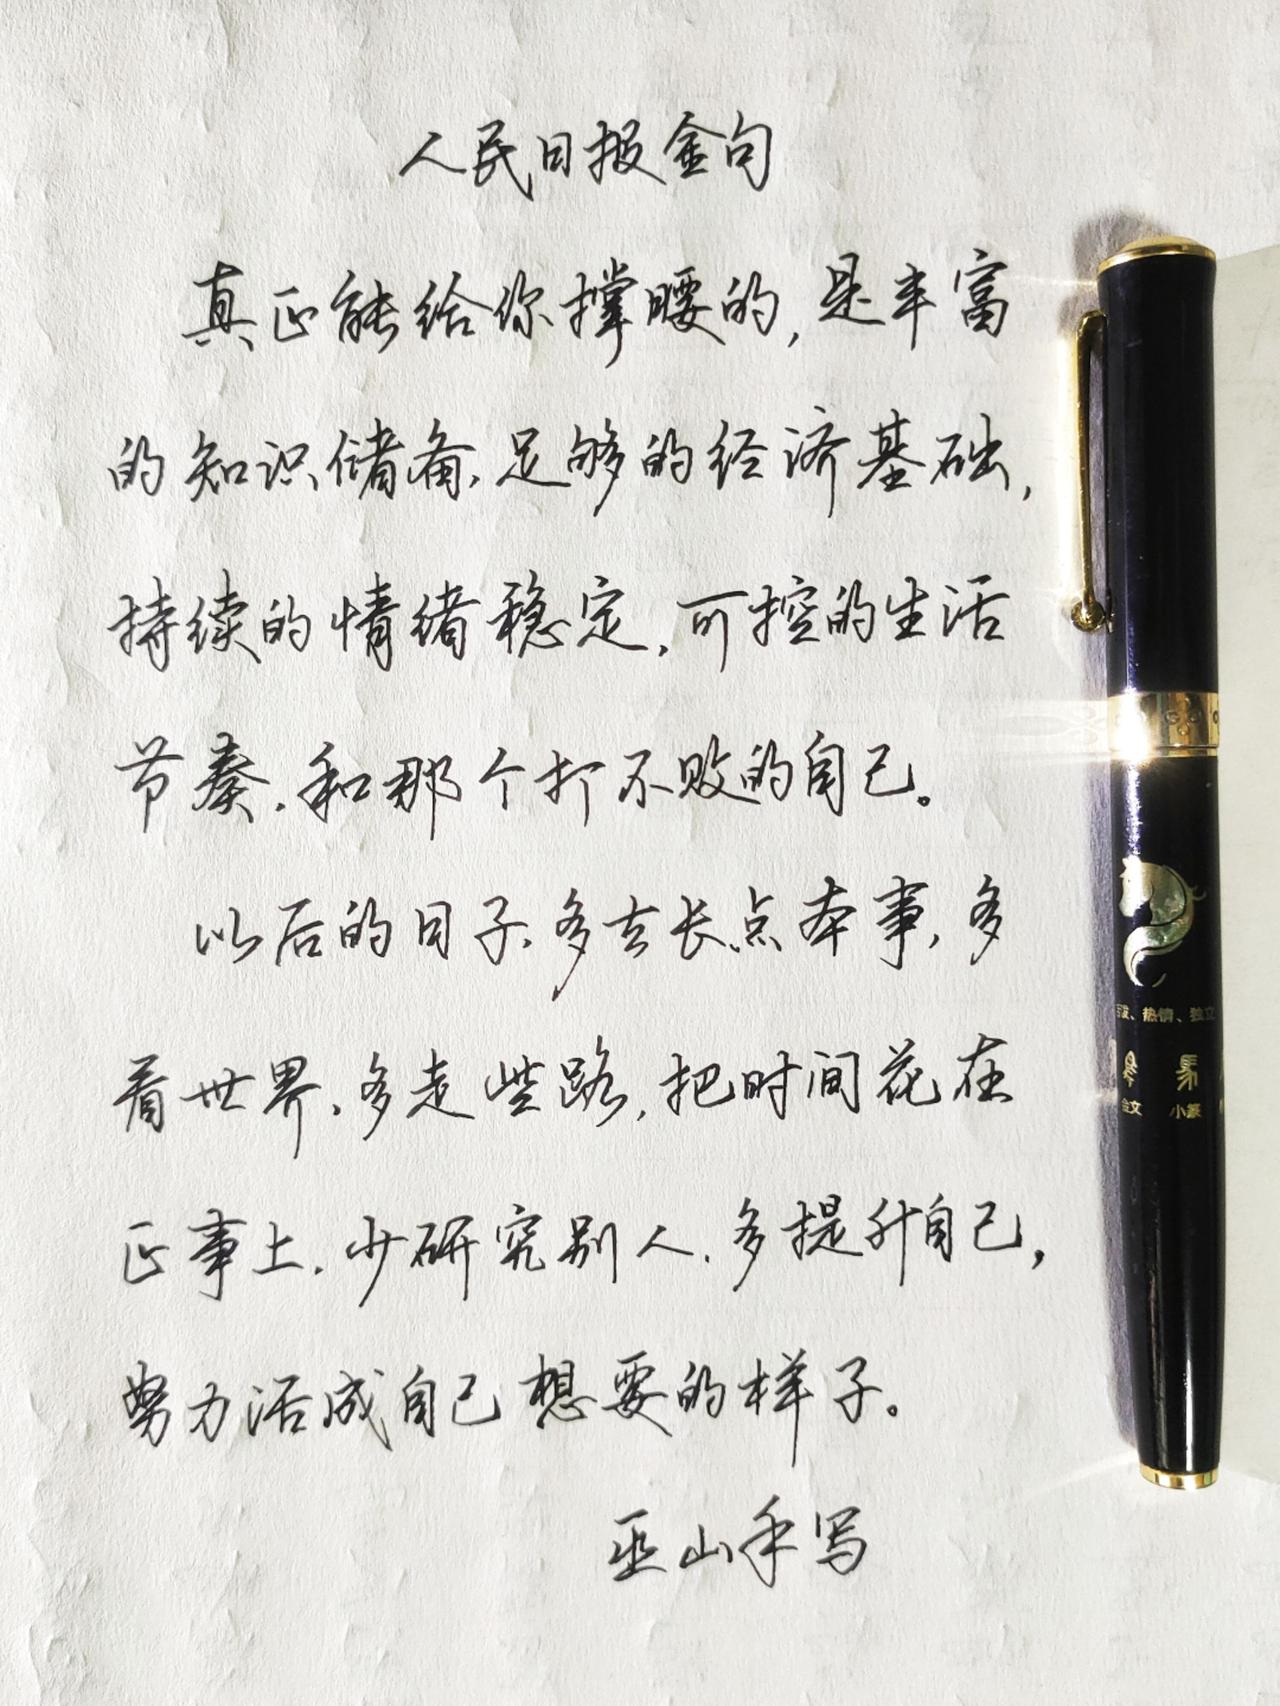 人民日报金句
真正能给你撑腰的,是丰富
的知识储备,足够的经济基础,
持续的情绪稳定,可控的生活
节奏,和那个打不败的自己。
以后的日子,多去长点本事,多
看世界,多走些路,把时间花在
正事上,少研究别人,多提升自己,
努力活成自己想要的样子。
巫山手写
、热情、独立
金文 小篆